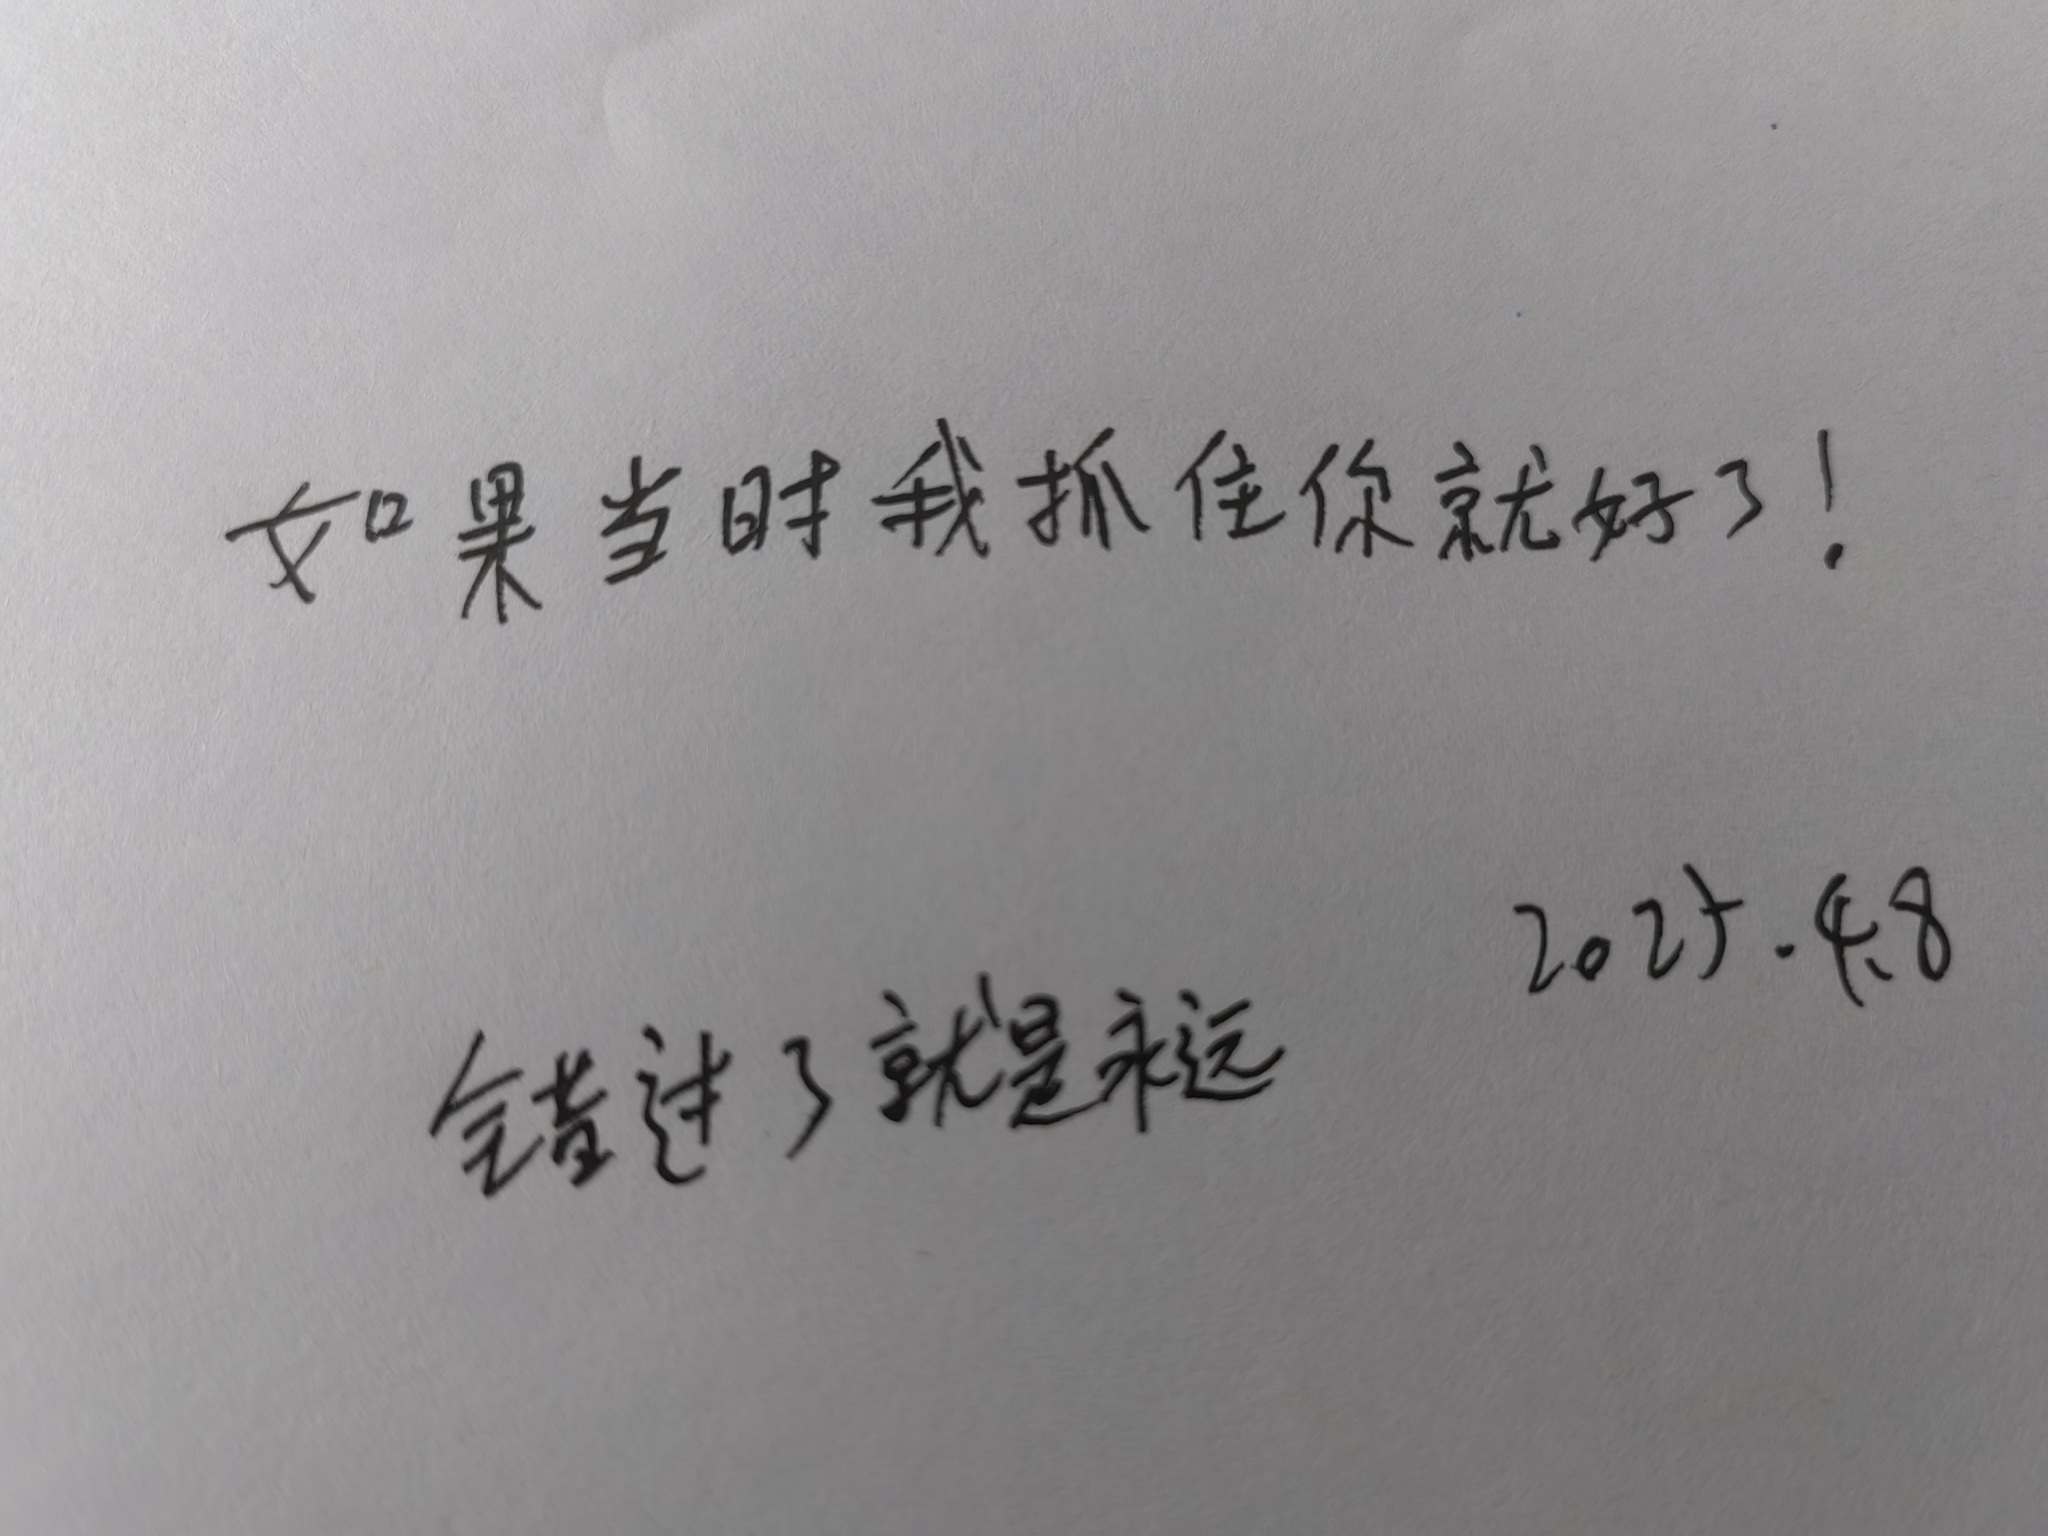 如果当时我抓住你就好了!
2025.4.8
错过了就是永远